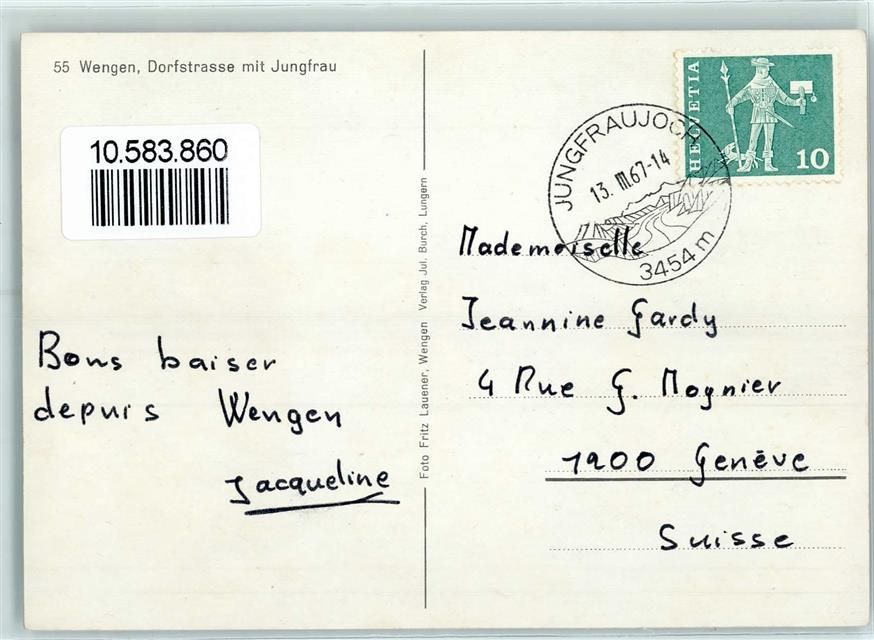 55 Wengen, Dorfstrasse mit Jungfrau
10.583.860
Bons baiser
depuis Wengen
Jacqueline
Foto Fritz Lauener, Wengen Verlag Jul. Burch, Lungern
HELVETIA
10
JUNGFRAUJOCH
13.III.67-14
3454 m
Mademoiselle
Jeannine Gardy
4 Rue G. Moynier
1200 Genève
Suisse